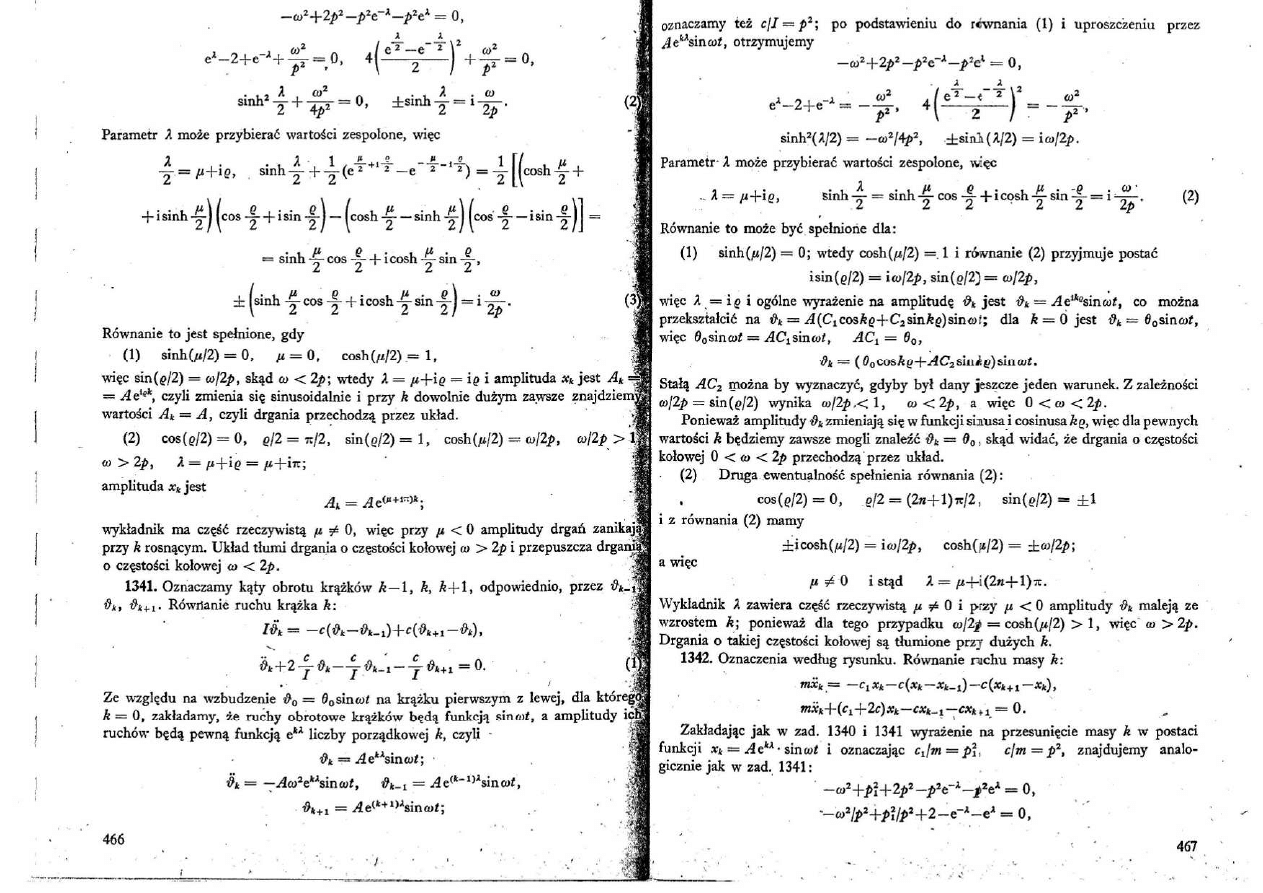 −ω²+2p²−p²e^{−λ}−p²e^{λ} = 0,
e^{λ}−2+e^{−λ}+ω²/p² = 0, 4((e^{λ/2}−e^{−λ/2})/2)²+ω²/p² = 0,
sinh² λ/2 + ω²/4p² = 0, ±sinh λ/2 = i ω/2p. (2)
Parametr λ może przybierać wartości zespolone, więc
λ/2 = μ+iϱ, sinh λ/2 + 1/2 (e^{μ/2+iϱ/2}−e^{−μ/2−iϱ/2}) = 1/2 [(cosh μ/2 +
+i sinh μ/2)(cos ϱ/2 + i sin ϱ/2) − (cosh μ/2 − sinh μ/2)(cos ϱ/2 − i sin ϱ/2)] =
= sinh μ/2 cos ϱ/2 + i cosh μ/2 sin ϱ/2,
±(sinh μ/2 cos ϱ/2 + i cosh μ/2 sin ϱ/2) = i ω/2p. (3)
Równanie to jest spełnione, gdy
(1) sinh(μ/2) = 0, μ = 0, cosh(μ/2) = 1,
więc sin(ϱ/2) = ω/2p, skąd ω < 2p; wtedy λ = μ+iϱ = iϱ i amplituda x_k jest A_k =
= Ae^{iϱk}, czyli zmienia się sinusoidalnie i przy k dowolnie dużym zawsze znajdziemy
wartości A_k = A, czyli drgania przechodzą przez układ.
(2) cos(ϱ/2) = 0, ϱ/2 = π/2, sin(ϱ/2) = 1, cosh(μ/2) = ω/2p, ω/2p > 1,
ω > 2p, λ = μ+iϱ = μ+iπ;
amplituda x_k jest
A_k = Ae^{(μ+iπ)k};
wykładnik ma część rzeczywistą μ ≠ 0, więc przy μ < 0 amplitudy drgań zanikają
przy k rosnącym. Układ tłumi drgania o częstości kołowej ω > 2p i przepuszcza drgania
o częstości kołowej ω < 2p.
1341. Oznaczamy kąty obrotu krążków k−1, k, k+1, odpowiednio, przez ϑ_{k−1},
ϑ_k, ϑ_{k+1}. Równanie ruchu krążka k:
Iϑ̈_k = −c(ϑ_k−ϑ_{k−1})+c(ϑ_{k+1}−ϑ_k),
ϑ̈_k+2 c/I ϑ_k− c/I ϑ_{k−1}− c/I ϑ_{k+1} = 0. (1)
Ze względu na wzbudzenie ϑ₀ = θ₀sinωt na krążku pierwszym z lewej, dla którego
k = 0, zakładamy, że ruchy obrotowe krążków będą funkcją sinωt, a amplitudy ich
ruchów będą pewną funkcją e^{kλ} liczby porządkowej k, czyli
ϑ_k = Ae^{kλ}sinωt;
ϑ̈_k = −Aω²e^{kλ}sinωt, ϑ_{k−1} = Ae^{(k−1)λ}sinωt,
ϑ_{k+1} = Ae^{(k+1)λ}sinωt;
466
oznaczamy też c/I = p²; po podstawieniu do równania (1) i uproszczeniu przez
Ae^{kλ}sinωt, otrzymujemy
−ω²+2p²−p²e^{−λ}−p²e^{λ} = 0,
e^{λ}−2+e^{−λ} = −ω²/p², 4((e^{λ/2}−e^{−λ/2})/2)² = −ω²/p²,
sinh²(λ/2) = −ω²/4p², ±sinh(λ/2) = iω/2p.
Parametr λ może przybierać wartości zespolone, więc
λ = μ+iϱ, sinh λ/2 = sinh μ/2 cos ϱ/2 + i cosh μ/2 sin ϱ/2 = i ω/2p. (2)
Równanie to może być spełnione dla:
(1) sinh(μ/2) = 0; wtedy cosh(μ/2) = 1 i równanie (2) przyjmuje postać
isin(ϱ/2) = iω/2p, sin(ϱ/2) = ω/2p,
więc λ = iϱ i ogólne wyrażenie na amplitudę ϑ_k jest ϑ_k = Ae^{ikϱ}sinωt, co można
przekształcić na ϑ_k = A(C₁coskϱ+C₂sinkϱ)sinωt; dla k = 0 jest ϑ_k = θ₀sinωt,
więc θ₀sinωt = AC₁sinωt, AC₁ = θ₀,
ϑ_k = (θ₀coskϱ+AC₂sinkϱ)sinωt.
Stałą AC₂ można by wyznaczyć, gdyby był dany jeszcze jeden warunek. Z zależności
ω/2p = sin(ϱ/2) wynika ω/2p < 1, ω < 2p, a więc 0 < ω < 2p.
Ponieważ amplitudy ϑ_k zmieniają się w funkcji sinusa i cosinusa kϱ, więc dla pewnych
wartości k będziemy zawsze mogli znaleźć ϑ_k = θ₀, skąd widać, że drgania o częstości
kołowej 0 < ω < 2p przechodzą przez układ.
(2) Druga ewentualność spełnienia równania (2):
cos(ϱ/2) = 0, ϱ/2 = (2n+1)π/2, sin(ϱ/2) = ±1
i z równania (2) mamy
±icosh(μ/2) = iω/2p, cosh(μ/2) = ±ω/2p;
a więc
μ ≠ 0 i stąd λ = μ+i(2n+1)π.
Wykładnik λ zawiera część rzeczywistą μ ≠ 0 i przy μ < 0 amplitudy ϑ_k maleją ze
wzrostem k; ponieważ dla tego przypadku ω/2p = cosh(μ/2) > 1, więc ω > 2p.
Drgania o takiej częstości kołowej są tłumione przy dużych k.
1342. Oznaczenia według rysunku. Równanie ruchu masy k:
mẍ_k = −c₁x_k−c(x_k−x_{k−1})−c(x_{k+1}−x_k),
mẍ_k+(c₁+2c)x_k−cx_{k−1}−cx_{k+1} = 0.
Zakładając jak w zad. 1340 i 1341 wyrażenie na przesunięcie masy k w postaci
funkcji x_k = Ae^{kλ}·sinωt i oznaczając c₁/m = p₁², c/m = p², znajdujemy analo-
gicznie jak w zad. 1341:
−ω²+p₁²+2p²−p²e^{−λ}−p²e^{λ} = 0,
−ω²/p²+p₁²/p²+2−e^{−λ}−e^{λ} = 0,
467